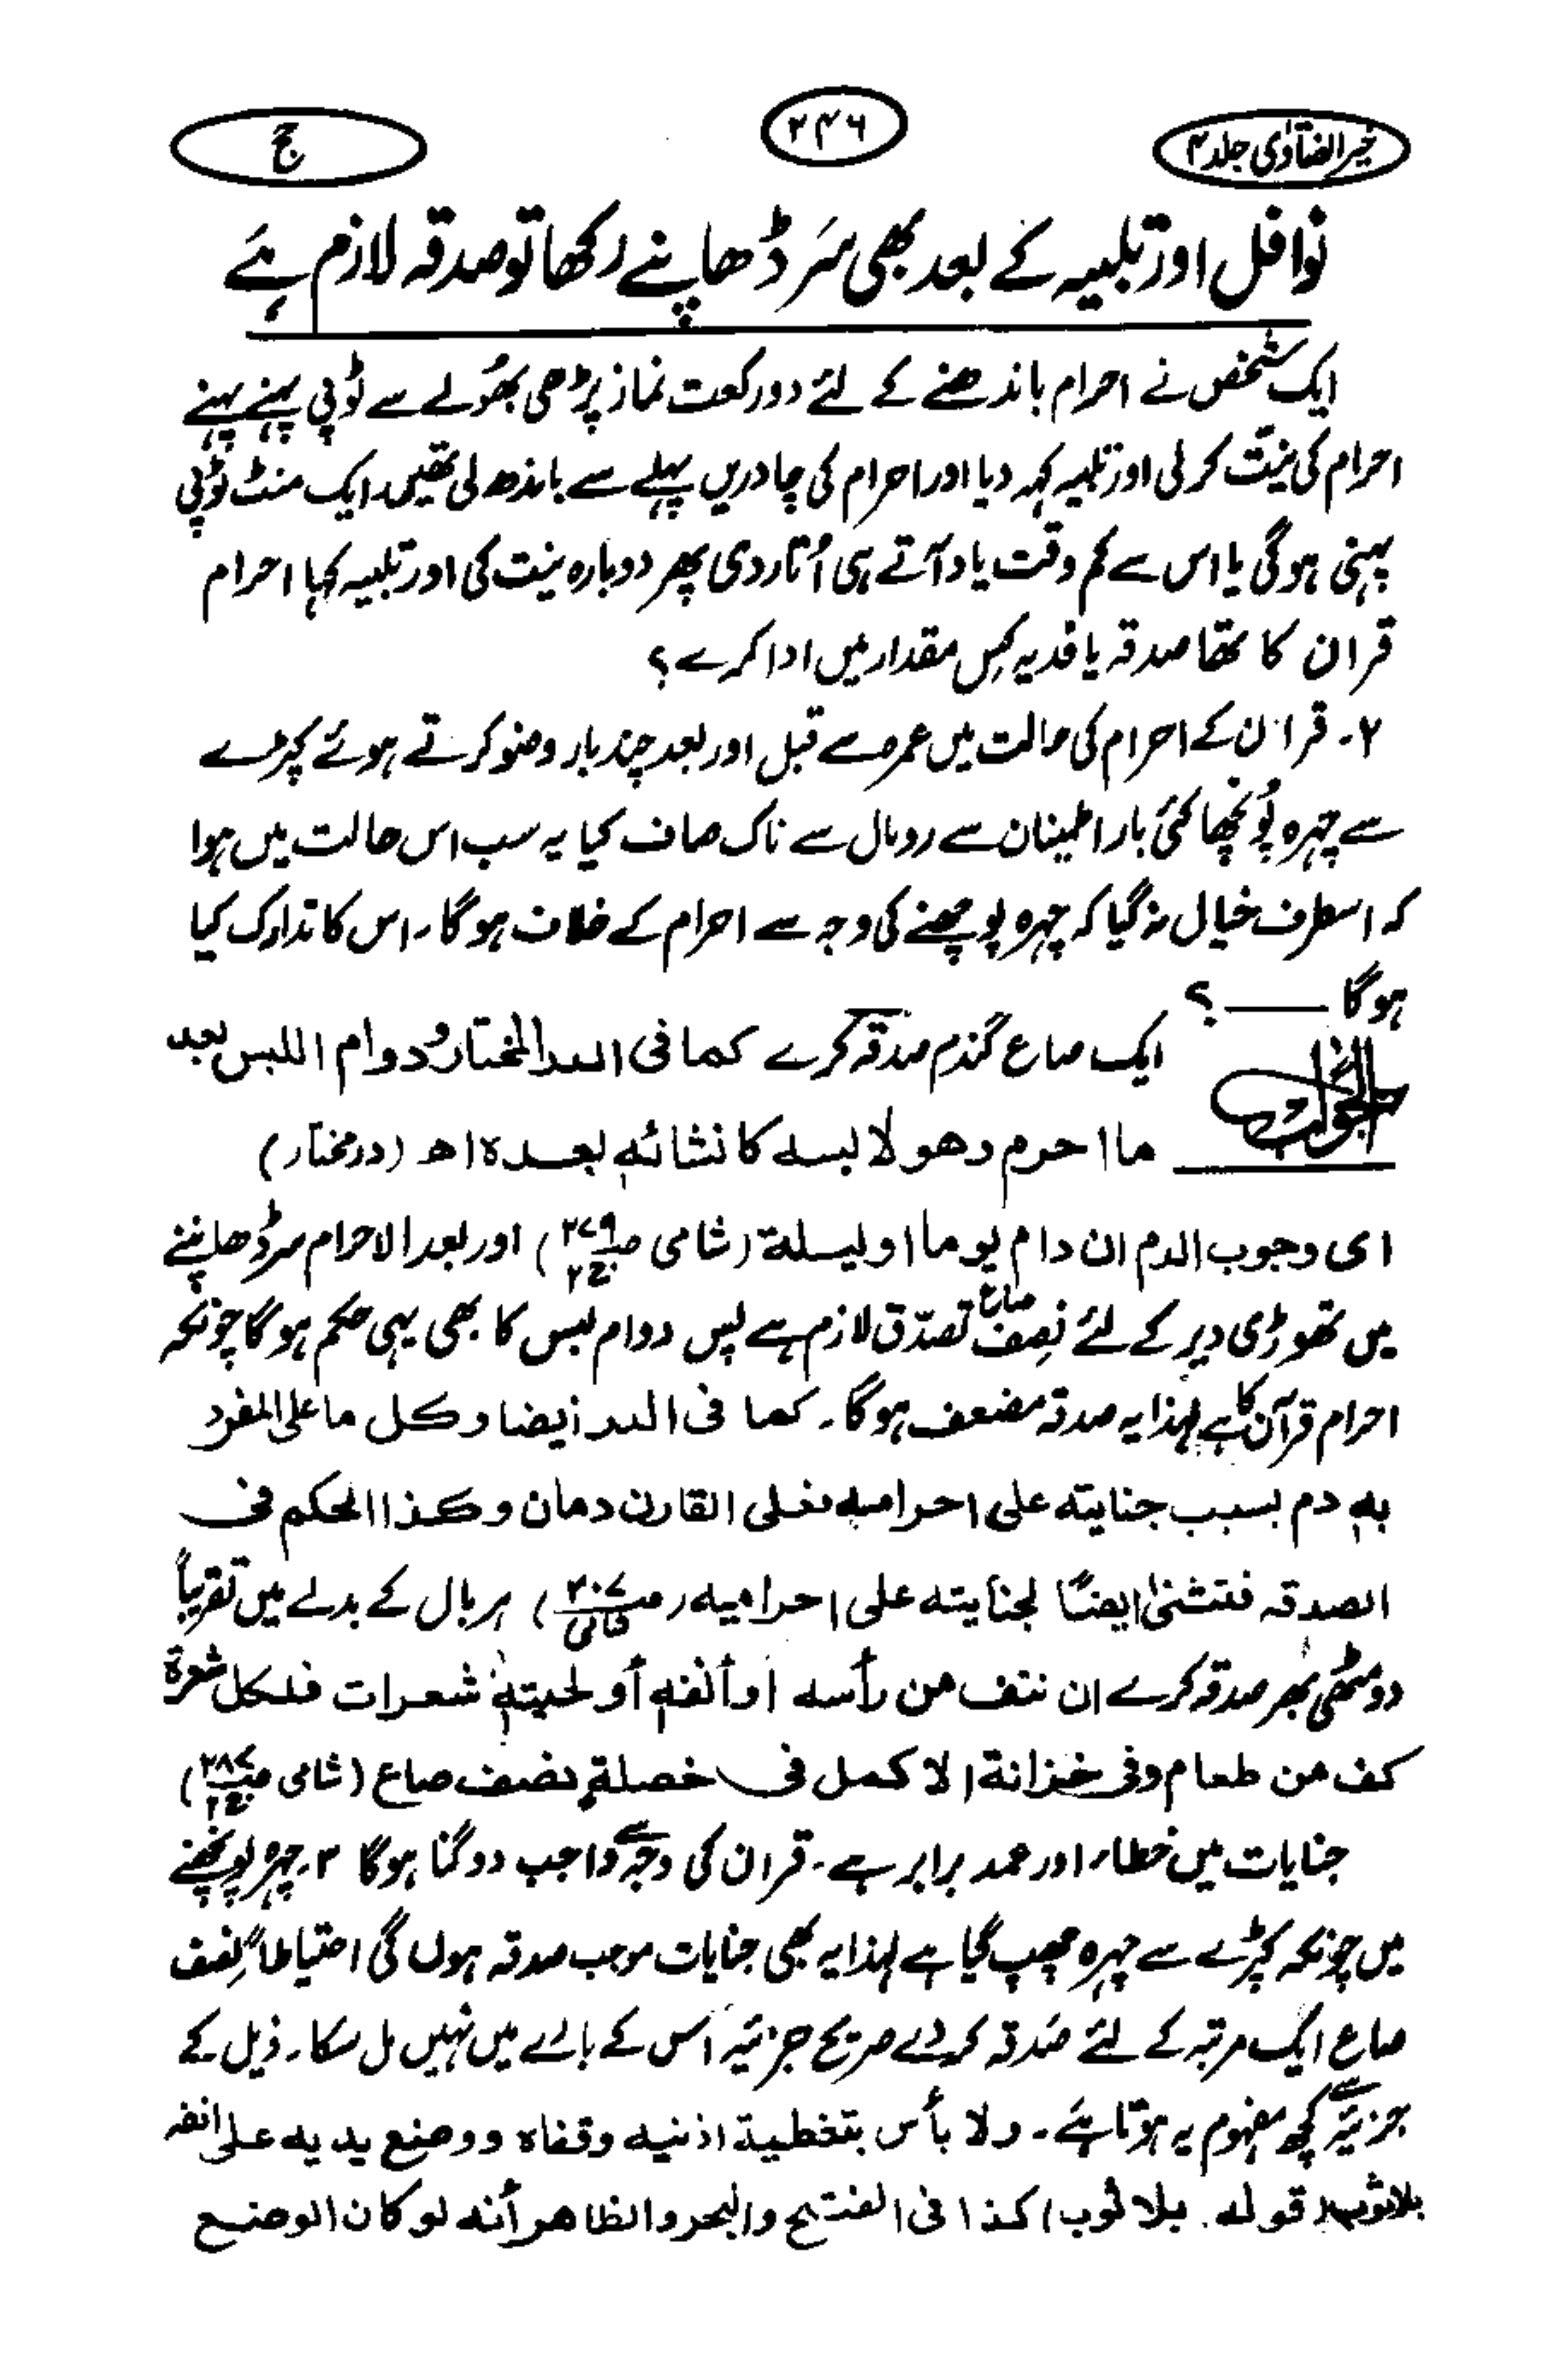 خیر الفتاوٰی جلد ۴
۲۴۶
حج
نوافل اور تلبیہ کے بعد بھی سَر ڈھاپنے رکھا تو صدقہ لازم ہے
ایک شخص نے احرام باندھنے کے لئے دو رکعت نماز پڑھی بھُولے سے ٹوپی پہنے پہنے
احرام کی نیّت کر لی اور تلبیہ کہہ دیا اور احرام کی چادریں پہلے سے باندھ لی تھیں، ایک منٹ ٹوپی
پہنی ہوگی یا اس سے کم وقت یاد آتے ہی اُتار دی پھر دوبارہ نیت کی اور تلبیہ کہا احرام
قران کا تھا صدقہ یا فدیہ کس مقدار میں ادا کرے؟
۲۔ قران کے احرام کی حالت میں عمرہ سے قبل اور بعد چند بار وضو کرتے ہوئے کپڑے
سے چہرہ پُونچھا کئی بار اطمینان سے رومال سے ناک صاف کیا یہ سب اس حالت میں ہوا
کہ اسطرف خیال نہ گیا کہ چہرہ پوچھنے کی وجہ سے احرام کے خلاف ہوگا۔ اس کا تدارک کیا
ہوگا ——؟
الجواب ایک صاع گندم صدقہ کرے کما فی الدر المختار ودوام اللبس بعد
ما احرم وھو لابسہ کانشائہ بعدہ اھ (در مختار)
ای وجوب الدم ان دام یوما او لیلة (شامی ص۲۷۹ ج۲) اور بعد الاحرام سر ڈھاپنے
میں تھوڑی دیر کے لئے نِصف صاع تصدّق لازم ہے پس دوام لبس کا بھی یہی حکم ہوگا چونکہ
احرام قرآن کا ہے لہذا یہ صدقہ مضعف ہوگا۔ کما فی الدر ایضا وکل ما علی المفرد
بہ دم بسبب جنایتہ علی احرامہ فعلی القارن دمان وکذا الحکم فی
الصدقہ فتثنیٰ ایضًا لجنایتہ علی احرامیہ (ص۳۰۷ شامی) ہر بال کے بدلے میں تقریباً
دو مٹھی بھر صدقہ کرے ان نتف من رأسه أو أنفه أو لحیتہ شعرات فلکل شعرة
کف من طعام وفی خزانة الاکمل فی خصلةٍ نصف صاع (شامی ج۲)
جنایات میں خطاء اور عمد برابر ہے۔ قران کی وجہ سے واجب دوگنا ہوگا ۳۔ چہرہ پونچھنے
میں چونکہ کپڑے سے چہرہ چھپ گیا ہے لہذا یہ بھی جنایات موجب صدقہ ہوں گی احتیاطاً نِصف
صاع ایک مرتبہ کے لئے صَدقہ کر دے صریح جزئیہ اس کے بارے میں نہیں مل سکا۔ ذیل کے
جزئیہ سے کچھ مفہوم یہ ہوتا ہے۔ ولا بأس بتغطیة اذنیہ وقفاہ ووضع یدیہ علی انفہ
بلا ثوب (قولہ۔ بلا ثوب) کذا فی الفتح والبحر والظاھر أنہ لو کان الوضع